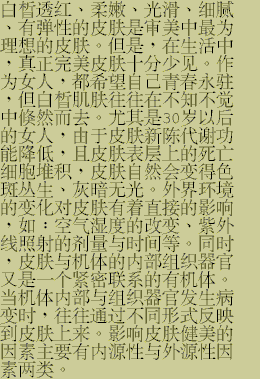 白皙透红、柔嫩、光滑、细腻
、有弹性的皮肤是审美中最为
理想的皮肤。但是，在生活中
，真正完美皮肤十分少见。作
为女人，都希望自己青春永驻
，但白皙肌肤往往在不知不觉
中倏然而去。尤其是30岁以后
的女人，由于皮肤新陈代谢功
能降低，且皮肤表层上的死亡
细胞堆积，皮肤自然会变得色
斑丛生、灰暗无光。外界环境
的变化对皮肤有着直接的影响
，如：空气湿度的改变、紫外
线照射的剂量与时间等。同时
，皮肤与机体的内部组织器官
又是一个紧密联系的有机体。
当机体内部与组织器官发生病
变时，往往通过不同形式反映
到皮肤上来。影响皮肤健美的
因素主要有内源性与外源性因
素两类。